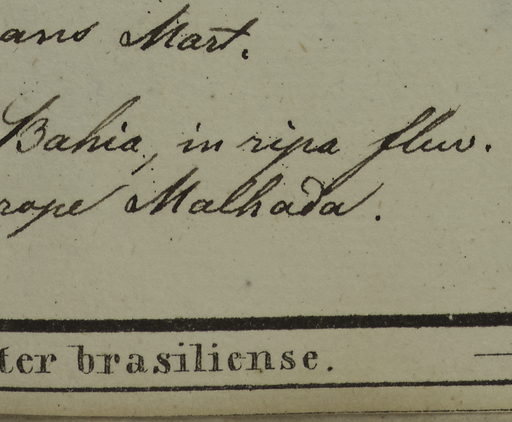 ans Mart.
Bahia, in ripa fluv.
rope Malhada.
ter brasiliense.